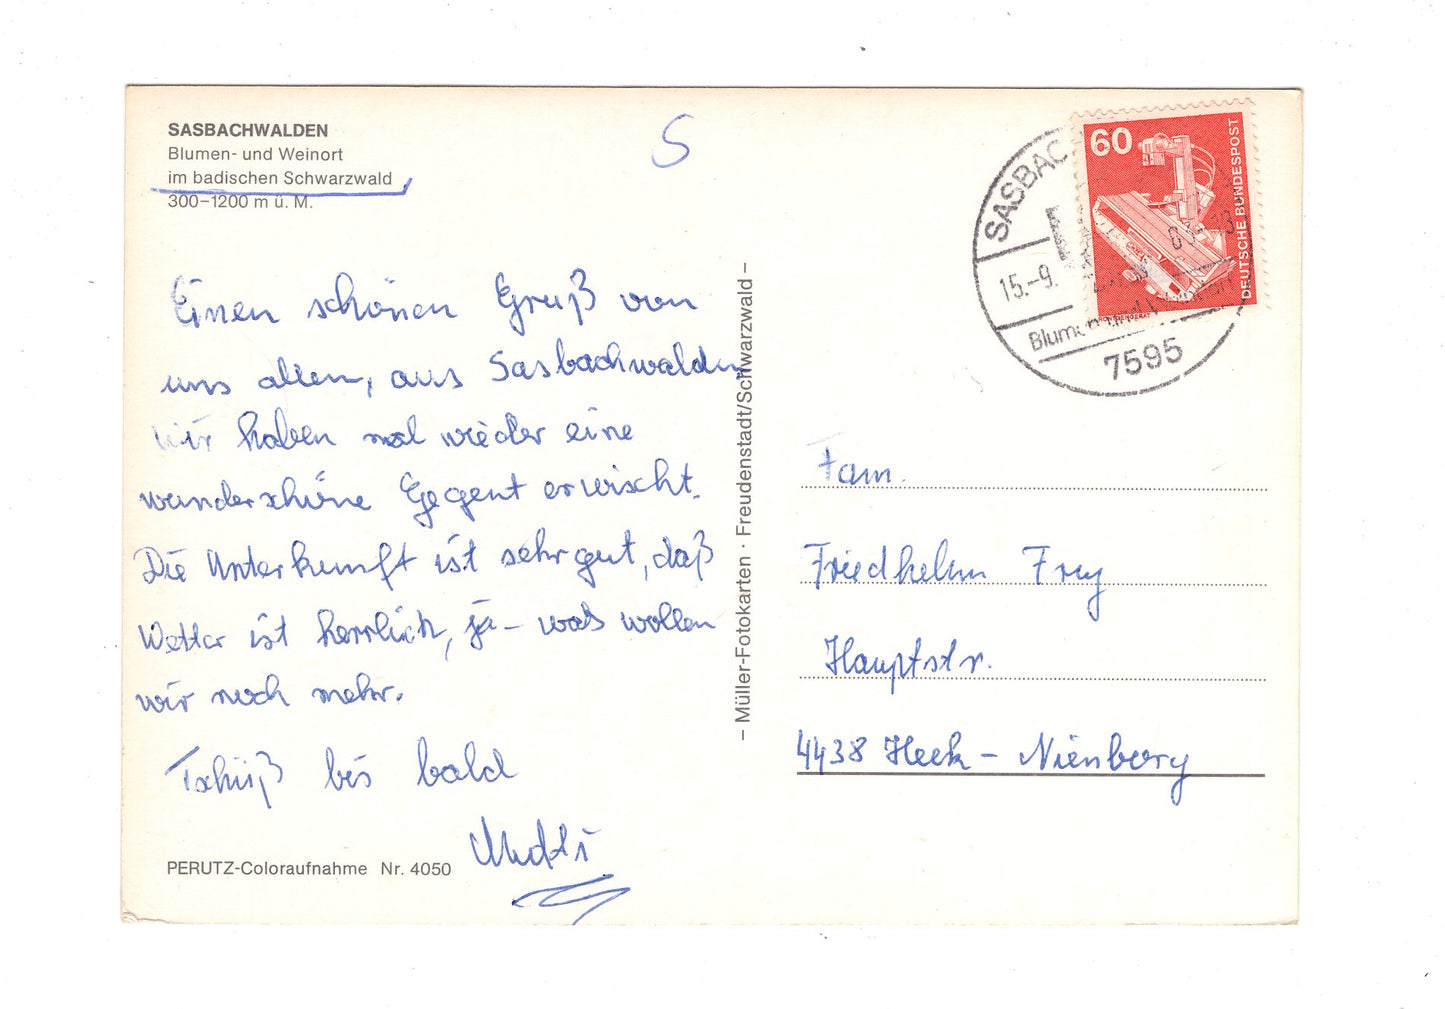 SASBACHWALDEN
Blumen- und Weinort
im badischen Schwarzwald
300–1200 m ü. M.
S
Einen schönen Gruß von
uns allen, aus Sasbachwalden
wir haben mal wieder eine
wunderschöne Gegent erwischt.
Die Unterkunft ist sehr gut, daß
Wetter ist herrlich, ja – was wollen
wir noch mehr.
Tschüß bis bald
PERUTZ-Coloraufnahme Nr. 4050
– Müller-Fotokarten · Freudenstadt/Schwarzwald –
SASBAC
15.-9.
Blumen und
7595
60
DEUTSCHE BUNDESPOST
Fam.
Friedhelm Frey
Hauptstr.
4438 Heek – Nienborg